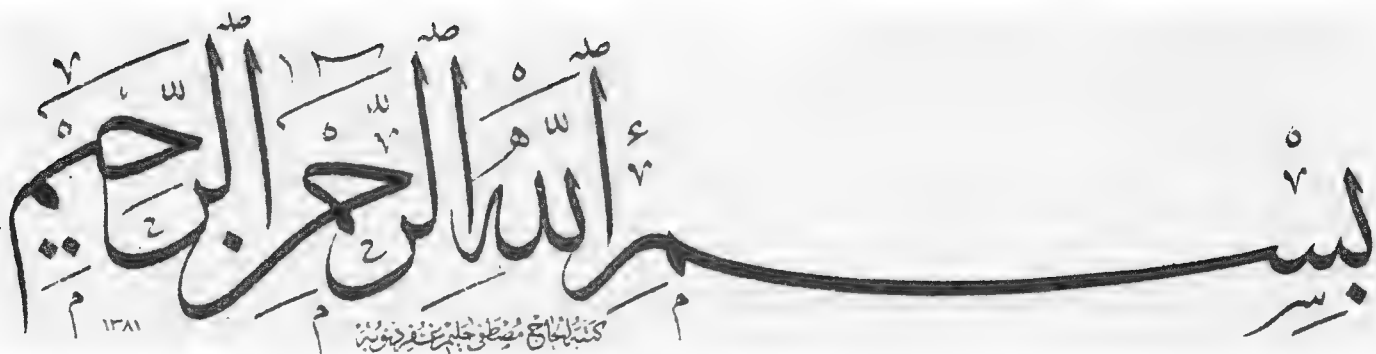 بِسْمِ ٱللَّهِ ٱلرَّحْمٰنِ ٱلرَّحِيمِ
كتبه الحاج مصطفى حليم غفر ذنوبه
١٣٨١